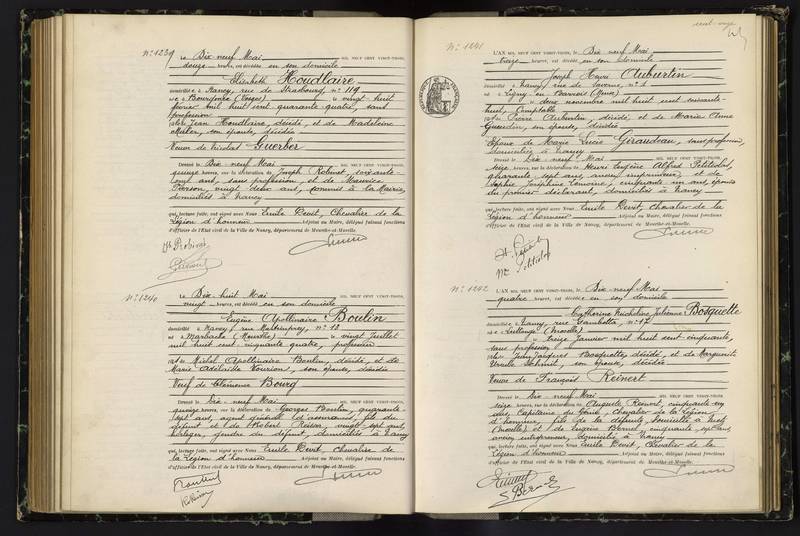 N° 1239
Le Dix neuf Mai MIL NEUF CENT VINGT-TROIS,
douze heures, est décédée en son domicile
Elisabeth Houdlaire
domiciliée à Nancy, rue de Strasbourg n° 119
née à Bourgfonce (Vosges) le vingt huit
février mil huit cent quarante quatre, sans
profession
fille de Jean Houdlaire, décédé, et de Madeleine
son épouse, décédée
Veuve de Nicolas Guerber
Dressé le Dix neuf Mai MIL NEUF CENT VINGT-TROIS,
quinze heures, sur la déclaration de Joseph Robinet, soixante-
ans, sans profession, et de Maurice
vingt deux ans, commis à la Mairie,
domiciliés à Nancy
qui, lecture faite, ont signé avec Nous Emile Devit, Chevalier de la
Légion d'honneur Adjoint au Maire, délégué faisant fonctions
d'officier de l'Etat civil de la Ville de Nancy, département de Meurthe-et-Moselle.
N° 1240
Le Dix-huit Mai MIL NEUF CENT VINGT-TROIS,
vingt heures, est décédé en son domicile
Eugène Apollinaire Boulin
domicilié à Nancy, rue n° 18
né à Marbache (Meurthe) le vingt Juillet
mil huit cent cinquante quatre, profession
fils de Michel Apollinaire Boulin, décédé, et de
Marie Adélaïde son épouse, décédée
Veuf de Clémence Bourg
Dressé le Dix neuf Mai MIL NEUF CENT VINGT-TROIS,
quinze heures, sur la déclaration de Georges Boulin, quarante
sept ans, agent général d'assurances, fils du
défunt et de Robert vingt sept ans,
horloger, gendre du défunt, domiciliés à Nancy
qui, lecture faite, ont signé avec Nous Emile Devit, Chevalier de
la Légion d'honneur Adjoint au Maire, délégué faisant fonctions
d'officier de l'Etat civil de la Ville de Nancy, département de Meurthe-et-Moselle.
N° 1241
L'AN MIL NEUF CENT VINGT-TROIS, le Dix neuf Mai
treize heures, est décédé en son domicile
Joseph Henri Aubertin
domicilié à Nancy, rue de n° 1
né à Ligny en Barrois (Meuse)
le deux novembre mil huit cent soixante-
huit, Comptable
fils de Pierre Aubertin, décédé, et de Marie Anne
son épouse, décédée
Epoux de Marie Lucie Giraudeau, sans profession,
domiciliée à Nancy
Dressé le Dix neuf Mai MIL NEUF CENT VINGT-TROIS,
seize heures, sur la déclaration de Henri Eugène Alfred Petitolot,
quarante sept ans, imprimeur, et de
Sophie Joséphine Lemoine, cinquante un ans, épouse
du premier déclarant, domiciliés à Nancy
qui, lecture faite, ont signé avec Nous Emile Devit, Chevalier de la
Légion d'honneur Adjoint au Maire, délégué faisant fonctions
d'officier de l'Etat civil de la Ville de Nancy, département de Meurthe-et-Moselle.
N° 1242
L'AN MIL NEUF CENT VINGT-TROIS, le Dix neuf Mai
quatre heures, est décédée en son domicile
Catherine Nicholine Julienne Bosquette
domiciliée à Nancy, rue Gambetta n° 17
née à (Moselle)
le treize Janvier mil huit cent cinquante,
sans profession
fille de Jean Jacques Bosquette, décédé, et de Marguerite
Schmit, son épouse, décédée
Veuve de François Reinert
Dressé le Dix neuf Mai MIL NEUF CENT VINGT-TROIS,
seize heures, sur la déclaration de Auguste Reinert, cinquante
ans, Capitaine du Génie, Chevalier de la Légion
d'honneur, fils de la défunte, domicilié à
(Moselle) et de Eugène Bernel, cinquante sept ans,
ancien entrepreneur, domicilié à Nancy
qui, lecture faite, ont signé avec Nous Emile Devit, Chevalier de la
Légion d'honneur Adjoint au Maire, délégué faisant fonctions
d'officier de l'Etat civil de la Ville de Nancy, département de Meurthe-et-Moselle.